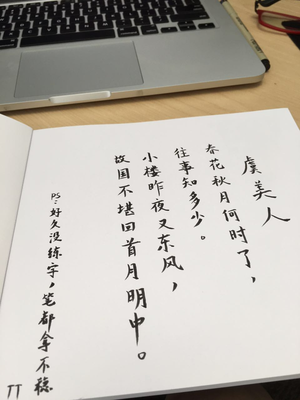 虞美人
春花秋月何时了，
往事知多少。
小楼昨夜又东风，
故国不堪回首月明中。
PS：好久没练字，笔都拿不稳
TT